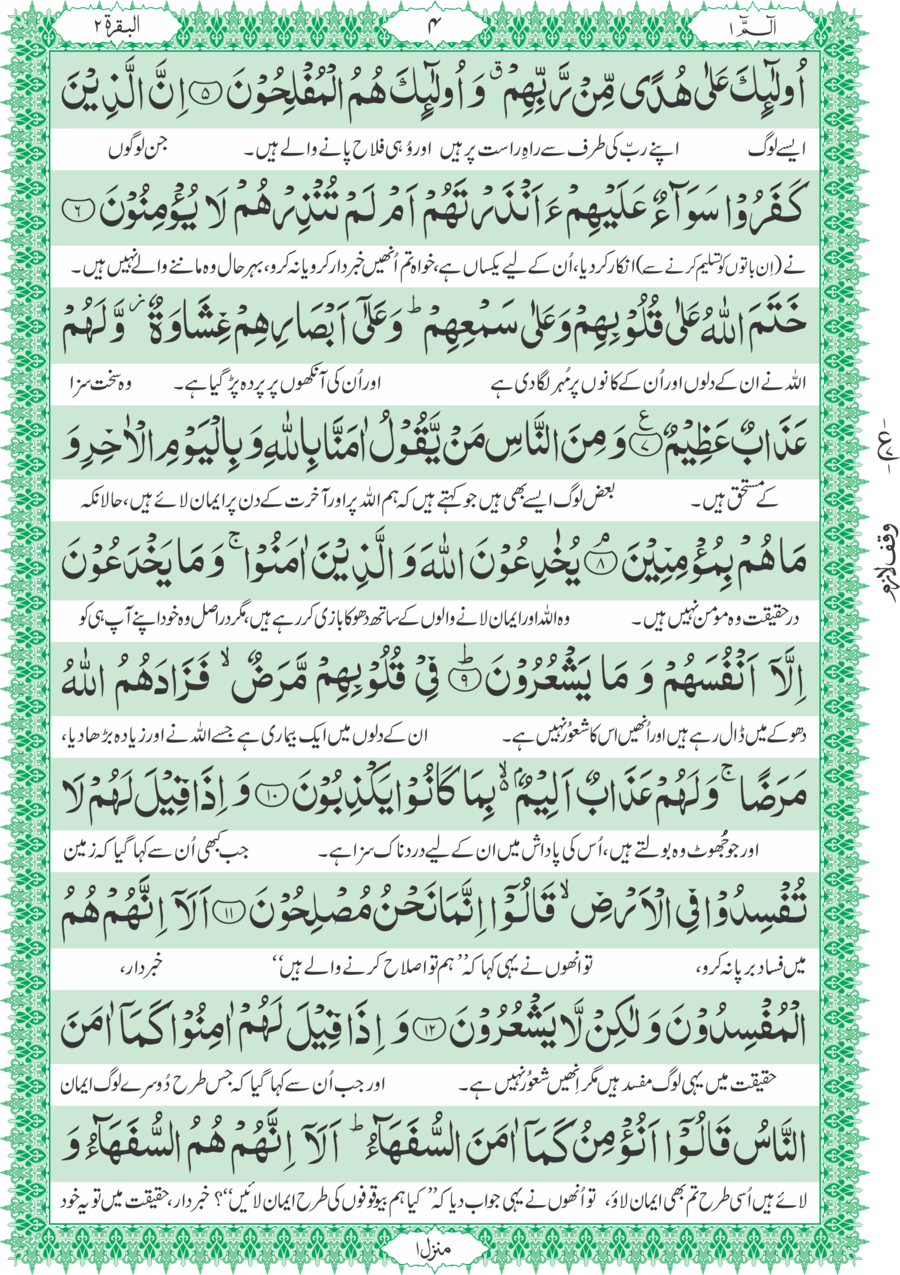 الٓـمّٓ ۱
۴
البقرة ۲
اُولٰٓئِكَ عَلٰى هُدًى مِّنْ رَّبِّهِمْ ۗ وَ اُولٰٓئِكَ هُمُ الْمُفْلِحُوْنَ ۝۵ اِنَّ الَّذِيْنَ
ایسے لوگ اپنے ربّ کی طرف سے راہِ راست پر ہیں اور وُہی فلاح پانے والے ہیں۔ جن لوگوں
كَفَرُوْا سَوَآءٌ عَلَيْهِمْ ءَاَنْذَرْتَهُمْ اَمْ لَمْ تُنْذِرْهُمْ لَا يُؤْمِنُوْنَ ۝۶
نے (اِن باتوں کو تسلیم کرنے سے) انکار کر دیا، اُن کے لیے یکساں ہے، خواہ تم اُنھیں خبردار کرو یا نہ کرو، بہر حال وہ ماننے والے نہیں ہیں۔
خَتَمَ اللّٰهُ عَلٰى قُلُوْبِهِمْ وَعَلٰى سَمْعِهِمْ ؕ وَعَلٰٓى اَبْصَارِهِمْ غِشَاوَةٌ ؗ وَّلَهُمْ
اللہ نے ان کے دلوں اور اُن کے کانوں پر مُہر لگا دی ہے اور اُن کی آنکھوں پر پردہ پڑ گیا ہے۔ وہ سخت سزا
عَذَابٌ عَظِيْمٌ ۝۷ ع وَ مِنَ النَّاسِ مَنْ يَّقُوْلُ اٰمَنَّا بِاللّٰهِ وَ بِالْيَوْمِ الْاٰخِرِ وَ
ع ۱
کے مستحق ہیں۔ بعض لوگ ایسے بھی ہیں جو کہتے ہیں کہ ہم اللہ پر اور آخرت کے دن پر ایمان لائے ہیں، حالانکہ
وقف لازم
مَا هُمْ بِمُؤْمِنِيْنَ ۝۸ۘ يُخٰدِعُوْنَ اللّٰهَ وَ الَّذِيْنَ اٰمَنُوْا ۚ وَ مَا يَخْدَعُوْنَ
در حقیقت وہ مومن نہیں ہیں۔ وہ اللہ اور ایمان لانے والوں کے ساتھ دھوکا بازی کر رہے ہیں، مگر دراصل وہ خود اپنے آپ ہی کو
اِلَّاۤ اَنْفُسَهُمْ وَ مَا يَشْعُرُوْنَ ۝۹ؕ فِيْ قُلُوْبِهِمْ مَّرَضٌ ۙ فَزَادَهُمُ اللّٰهُ
دھوکے میں ڈال رہے ہیں اور اُنھیں اس کا شعُور نہیں ہے۔ ان کے دلوں میں ایک بیماری ہے جسے اللہ نے اور زیادہ بڑھا دیا،
مَرَضًا ۚ وَ لَهُمْ عَذَابٌ اَلِيْمٌۢ ۙ۬ بِمَا كَانُوْا يَكْذِبُوْنَ ۝۱۰ وَ اِذَا قِيْلَ لَهُمْ لَا
اور جو جُھوٹ وہ بولتے ہیں، اُس کی پاداش میں ان کے لیے دردناک سزا ہے۔ جب کبھی اُن سے کہا گیا کہ زمین
تُفْسِدُوْا فِى الْاَرْضِ ۙ قَالُوْٓا اِنَّمَا نَحْنُ مُصْلِحُوْنَ ۝۱۱ اَلَاۤ اِنَّهُمْ هُمُ
میں فساد برپا نہ کرو، تو انھوں نے یہی کہا کہ ”ہم تو اصلاح کرنے والے ہیں“ خبردار،
الْمُفْسِدُوْنَ وَ لٰكِنْ لَّا يَشْعُرُوْنَ ۝۱۲ وَ اِذَا قِيْلَ لَهُمْ اٰمِنُوْا كَمَاۤ اٰمَنَ
حقیقت میں یہی لوگ مفسد ہیں مگر اِنھیں شعُور نہیں ہے۔ اور جب اُن سے کہا گیا کہ جس طرح دُوسرے لوگ ایمان
النَّاسُ قَالُوْٓا اَنُؤْمِنُ كَمَاۤ اٰمَنَ السُّفَهَآءُ ؕ اَلَاۤ اِنَّهُمْ هُمُ السُّفَهَآءُ وَ
لائے ہیں اُسی طرح تم بھی ایمان لاؤ، تو اُنھوں نے یہی جواب دیا کہ ”کیا ہم بیوقوفوں کی طرح ایمان لائیں“؟ خبردار، حقیقت میں تو یہ خود
منزل ۱